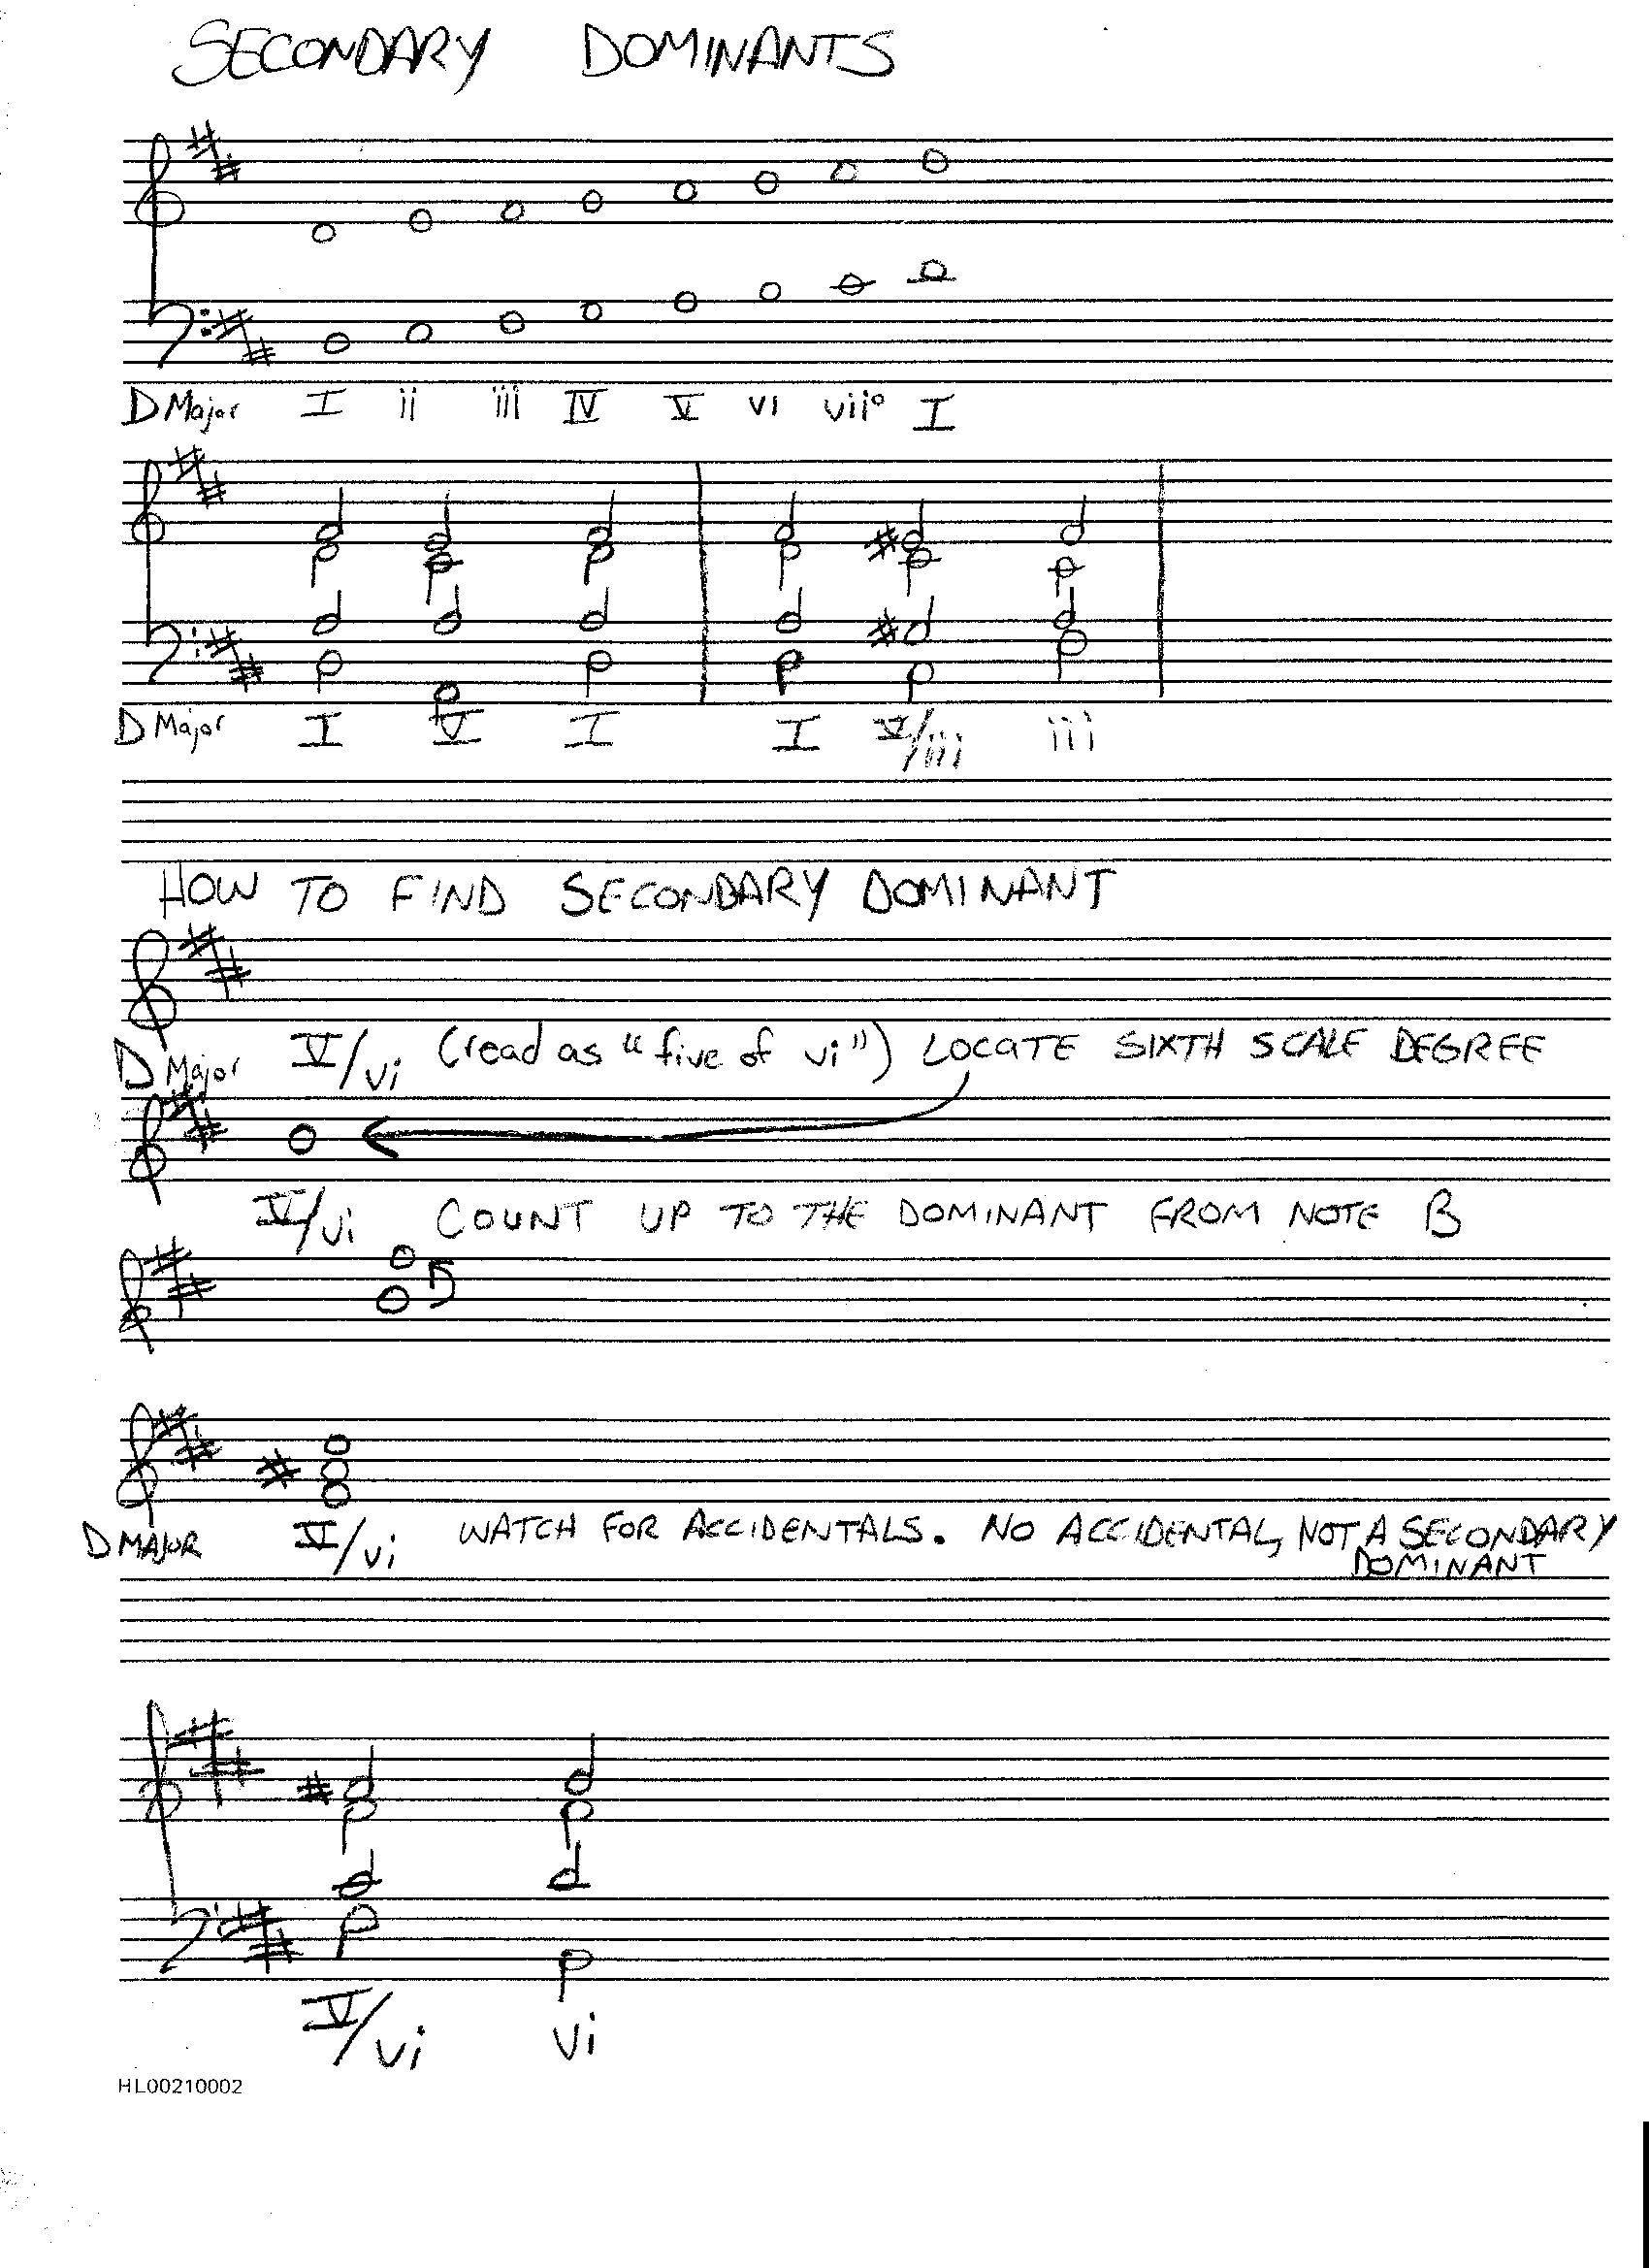 SECONDARY DOMINANTS
D Major I ii iii IV V vi vii° I
D Major I V I I V/iii iii
HOW TO FIND SECONDARY DOMINANT
D Major V/vi (read as "five of vi") LOCATE SIXTH SCALE DEGREE
V/vi COUNT UP TO THE DOMINANT FROM NOTE B
D MAJOR V/vi WATCH FOR ACCIDENTALS. NO ACCIDENTAL, NOT A SECONDARY
DOMINANT
V/vi vi
HL00210002